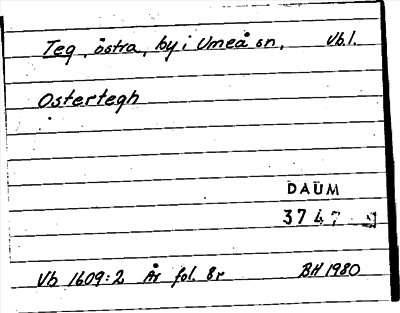 Teg, östra, by i Umeå sn, Vb.l.
Ostertegh
DAUM
3747
Vb 1609:2 År fol. 8r BH 1980